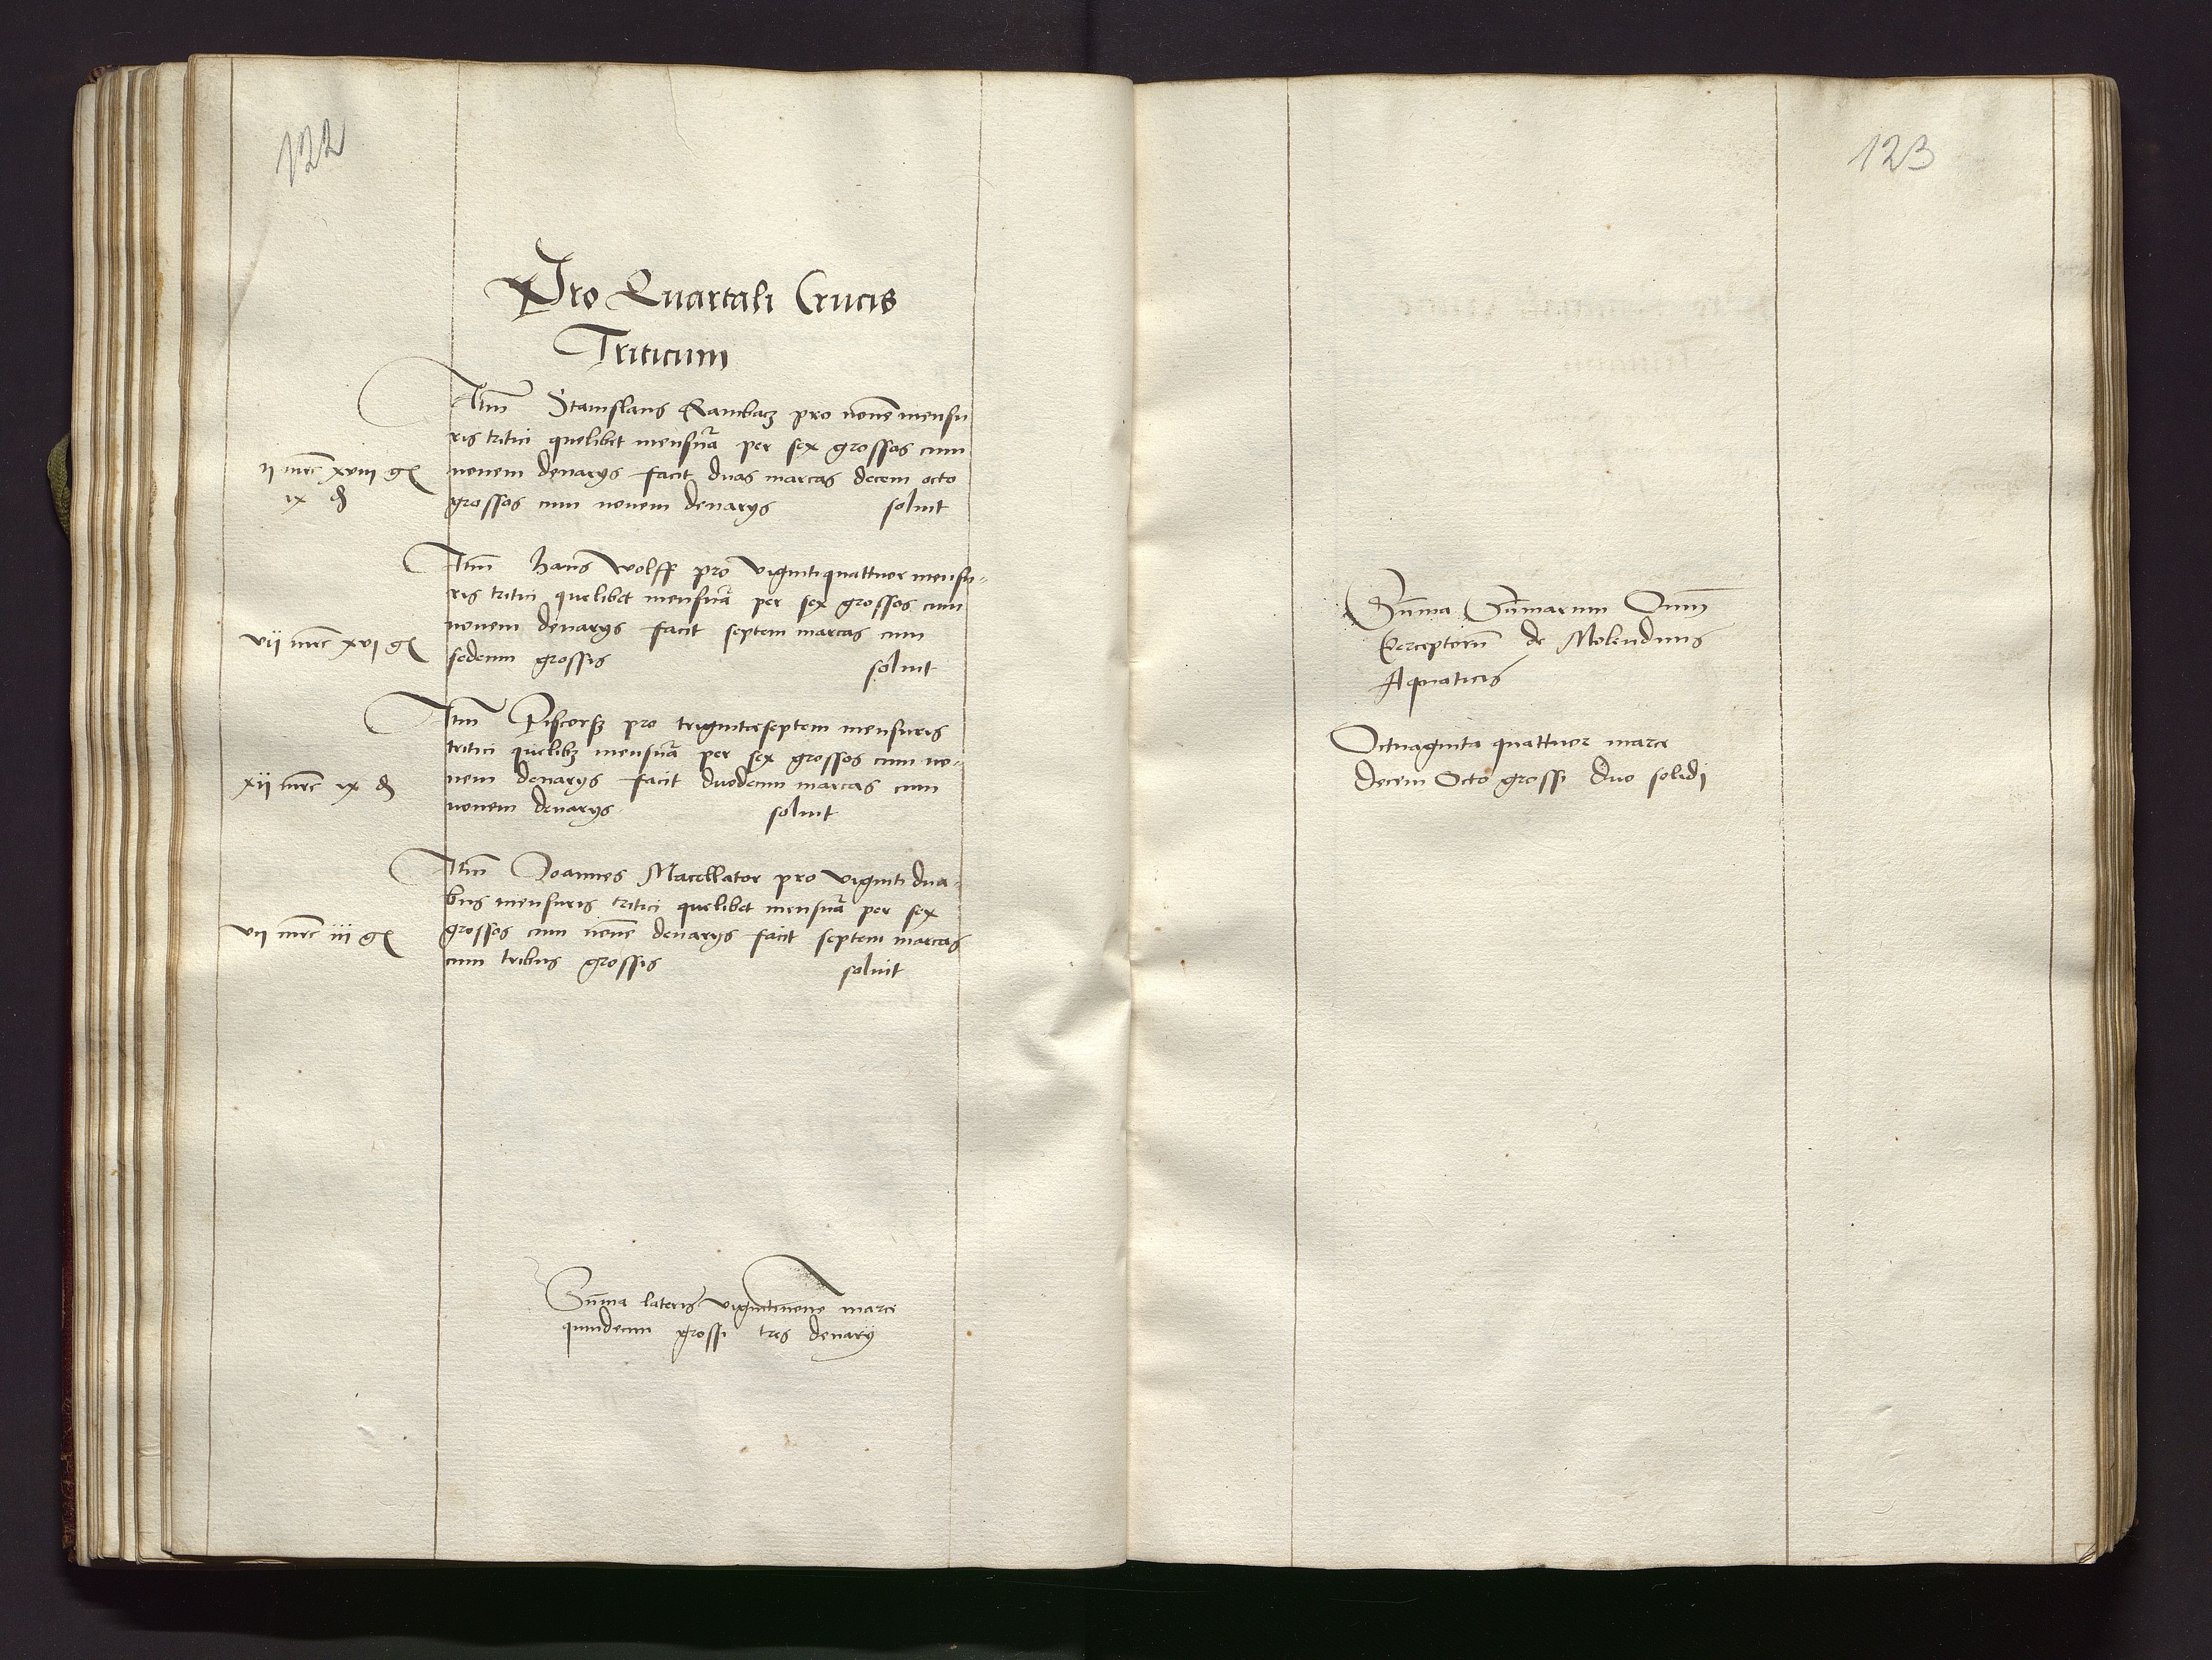 122
Pro Quartali Crucis
Triticum
Itm̄ Stanislaus pro nouē mensu
ris tritici quelibet mensur̄a per sex grossos cum
nouem denarÿs facit duas marcas decem octo
grossos cum nouem denarÿs soluit
ii mrc̄ xviii gͬ
ix ₰
Itm̄ hans wolff pro vigintiquattuor mensu-
ris tritici quelibet mensur̄a per sex grossos cum
nouem denarÿs facit septem marcas cum
sedecim grossis soluit
vii mrc̄ xvi gͬ
Itm̄ Piscorsz pro trigintaseptem mensuris
tritici quelibꝫ mensur̄a per sex grossos cum no-
uem denarÿs facit duodecim marcas cum
nouem denarÿs soluit
xii mrc̄ ix ₰
Itm̄ Joannes Macellator pro viginti dua-
bus mensuris tritici quelibet mensur̄a per sex
grossos cum nouē denarÿs facit septem marcas
cum tribus grossis soluit
vii mrc̄ iii gͬ
Sum̄a lateris vigintinoue marce
quindecim grossi tres denarÿ
123
Sum̄a Sum̄arum Om̄
Perceptorū de Molendinis
Aquaticis
Octuaginta quattuor marce
decem Octo grossi duo solidj